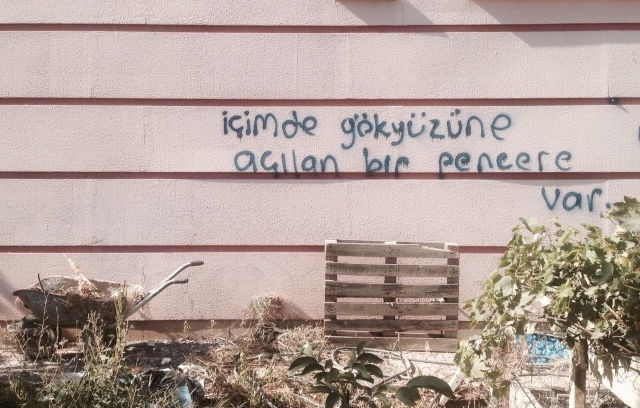 içimde gökyüzüne
açılan bir pencere
var.